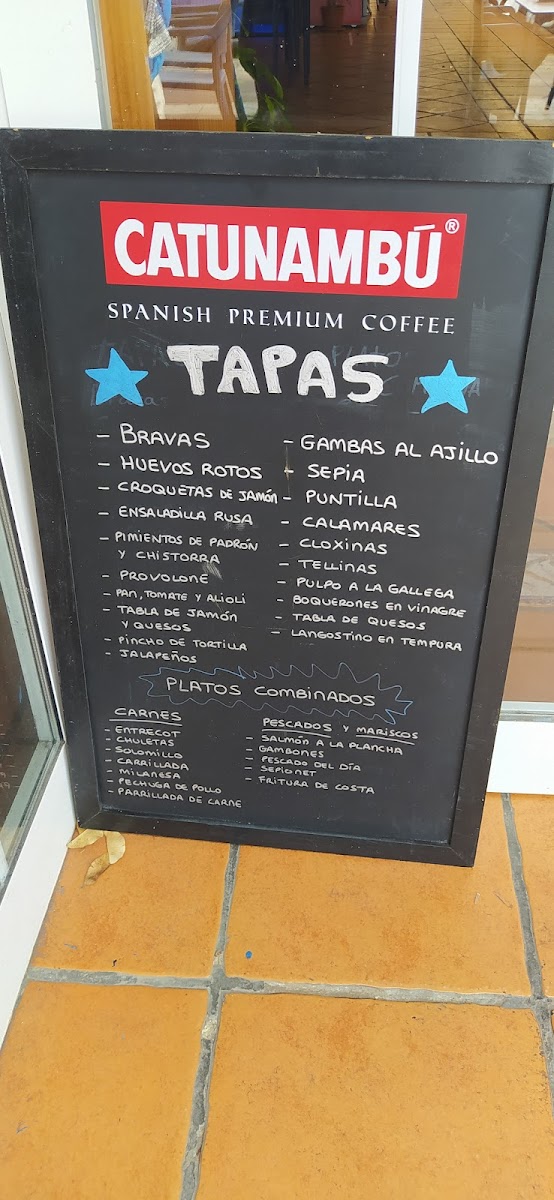 CATUNAMBÚ®
SPANISH PREMIUM COFFEE
TAPAS
- BRAVAS
- HUEVOS ROTOS
- CROQUETAS DE JAMÓN
- ENSALADILLA RUSA
- PIMIENTOS DE PADRÓN
Y CHISTORRA
- PROVOLONE
- PAN, TOMATE Y ALIOLI
- TABLA DE JAMÓN
Y QUESOS
- PINCHO DE TORTILLA
- JALAPEÑOS
- GAMBAS AL AJILLO
- SEPIA
- PUNTILLA
- CALAMARES
- CLOXINAS
- TELLINAS
- PULPO A LA GALLEGA
- BOQUERONES EN VINAGRE
- TABLA DE QUESOS
- LANGOSTINO EN TEMPURA
PLATOS COMBINADOS
CARNES
- ENTRECOT
- CHULETAS
- SOLOMILLO
- CARRILLADA
- MILANESA
- PECHUGA DE POLLO
- PARRILLADA DE CARNE
PESCADOS Y MARISCOS
- SALMÓN A LA PLANCHA
- GAMBONES
- PESCADO DEL DÍA
- SEPIONET
- FRITURA DE COSTA